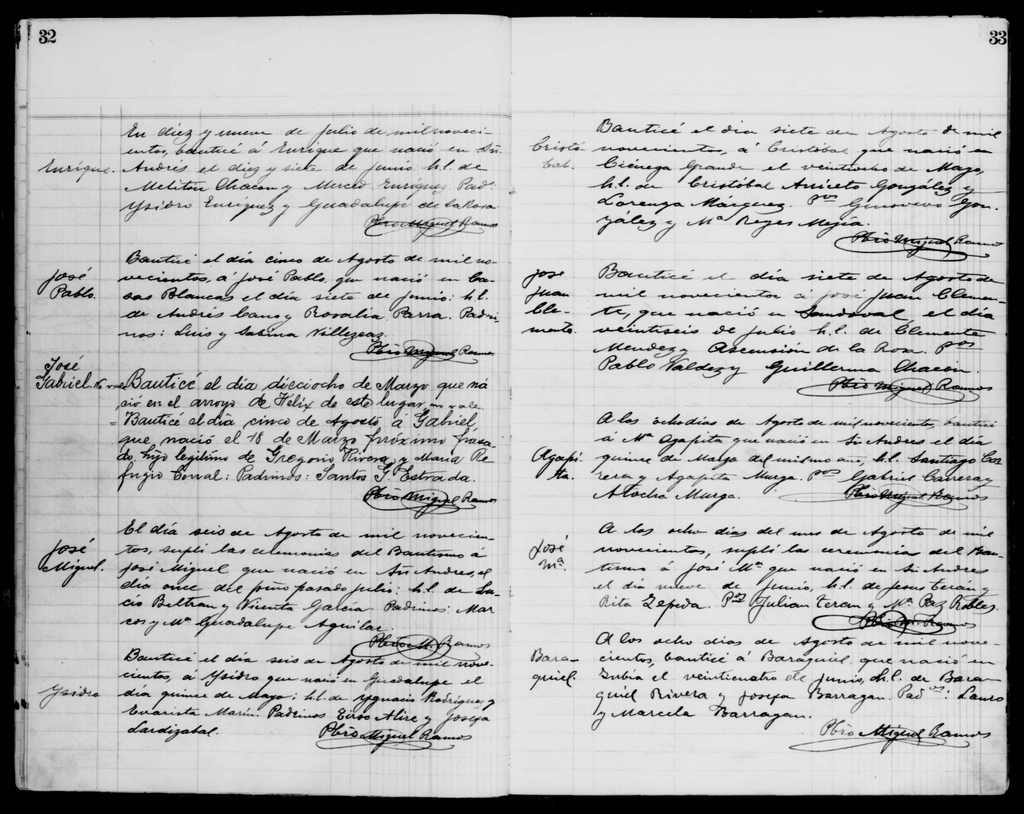 32
Enrique.
En diez y nueve de Julio de mil noveci-
entos, bauticé á Enrique que nació en Sn.
Andrés el diez y siete de Junio h.l. de
Melitón Chacon y Enriquez Pads
Ysidro Enriquez y Guadalupe de LaRosa
Pbro Miguel Ramos
José
Pablo.
Bauticé el día cinco de Agosto de mil no-
vecientos, á José Pablo, que nació en Ca-
sas Blancas el día siete de Junio: h.l.
de Andrés Cano y Rosalia Parra. Padri-
nos: Luis y Sabina Villezcas.
Pbro Miguel Ramos
José
Gabriel.
Bauticé el dia dieciocho de Marzo que na
ció en el arroyo de Felix de este lugar
Bauticé el día cinco de Agosto á Gabriel,
que nació el 18 de Marzo próximo pasa-
do, hijo legitimo de Gregorio Rivera y María Re-
fugio Corral: Padrinos: Santos G. Estrada.
Pbro Miguel Ramos
José
Miguel.
El día seis de Agosto de mil novecien-
tos, suplí las ceremonias del Bautismo á
José Miguel que nació en Sn Andres, el
día once del pmo pasado Julio: h.l. de Lu-
cio Beltran y Vicenta Garcia Padrinos: Mar-
cos y Ma Guadalupe Aguilar.
Pbro M. Ramos
Ysidro
Bauticé el día seis de Agosto de mil nove-
cientos, á Ysidro que nació en Guadalupe el
día quince de Mayo: h.l. de Ygnacio Rodriguez y
Evarista Marin. Padrinos Alire y Josefa
Lardizabal.
Pbro Miguel Ramos
33
Cristó-
bal.
Bauticé el dia siete de Agosto de mil
novecientos, á Cristóbal que nació en
Ciénega Grande el veintiocho de Mayo,
h.l. de Cristóbal Aniceto González y
Lorenza Márquez. Pnos Genoveva Gon-
zález y Ma Reyes Mejía.
Pbro Miguel Ramos
José
Juan
Cle-
mente.
Bauticé el día siete de Agosto de
mil novecientos á José Juan Clemen-
te, que nació en Sandoval el día
veintiseis de Julio h.l. de Clemente
Mendez y Ascensión de la Rosa. Pnos
Pablo Valdez y Guillerma Chacón.
Pbro Miguel Ramos
Agapi-
ta.
A los ocho dias de Agosto de mil novecientos, bauticé
á Ma Agapita que nació en Sn Andres el día
quince de Mayo del mismo año, h.l. Santiago Ca-
rrera y Agapita Murga. Pnos Gabriel Carrera y
Murga.
Pbro Miguel Ramos
José
Ma.
A los ocho dias del mes de Agosto de mil
novecientos, suplí las ceremonias del Bau-
tismo á José Ma. que nació en Sn Andres
el día nueve de Junio, h.l. de Jesus Terán y
Rita Zepeda. Pnos Julian Teran y Ma Paz Robles
Pbro M. Ramos
Bara-
quiel.
A los ocho dias de Agosto de mil nove-
cientos, bauticé á Baraquiel que nació en
Rubia el veinticuatro de Junio, h.l. de Bara-
quiel Rivera y Josefa Barragan. Padnos: Lauro
y Marcela Barragan.
Pbro Miguel Ramos